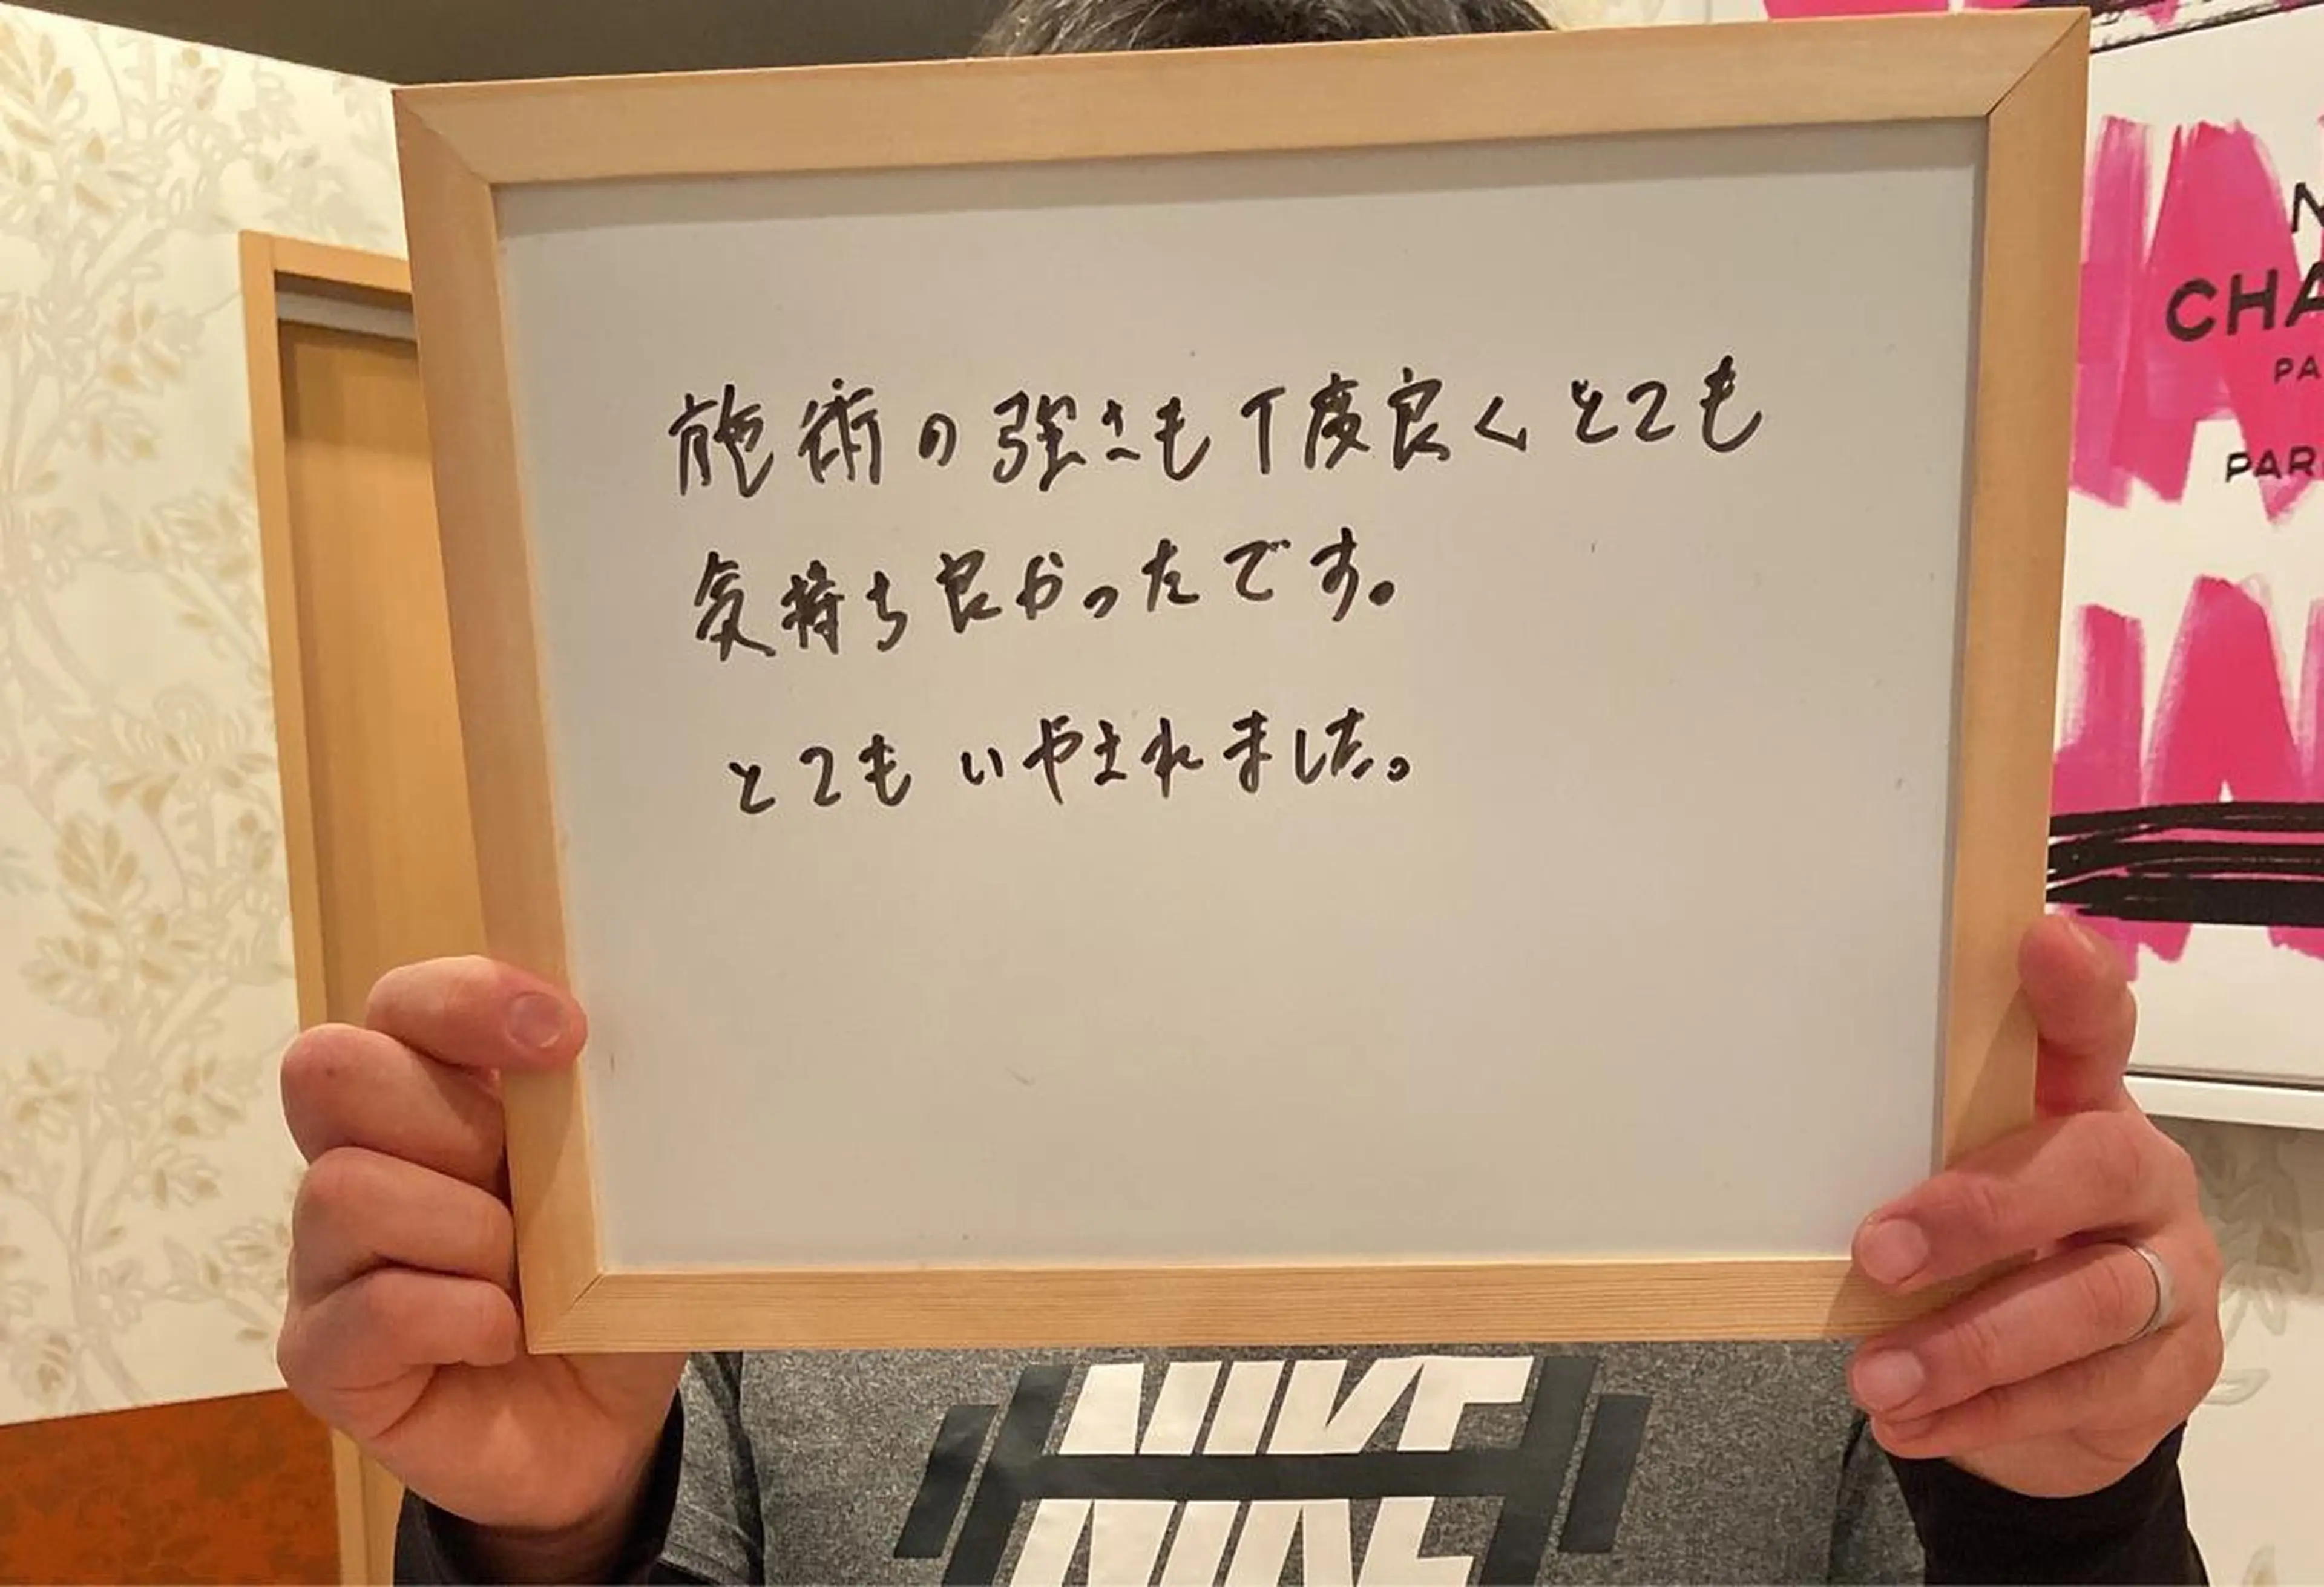 施術の強さも丁度良くとても
気持ち良かったです。
とても いやされました。
CHA
PA
PAR
NIKE
NIKE